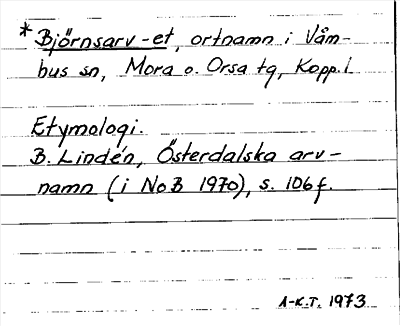 *Björnsarv-et, ortnamn i Våm-
bus sn, Mora o. Orsa tg, Kopp. l.
Etymologi.
B. Lindén, Österdalska arv-
namn (i NoB 1970), s. 106 f.
A-K.T. 1973